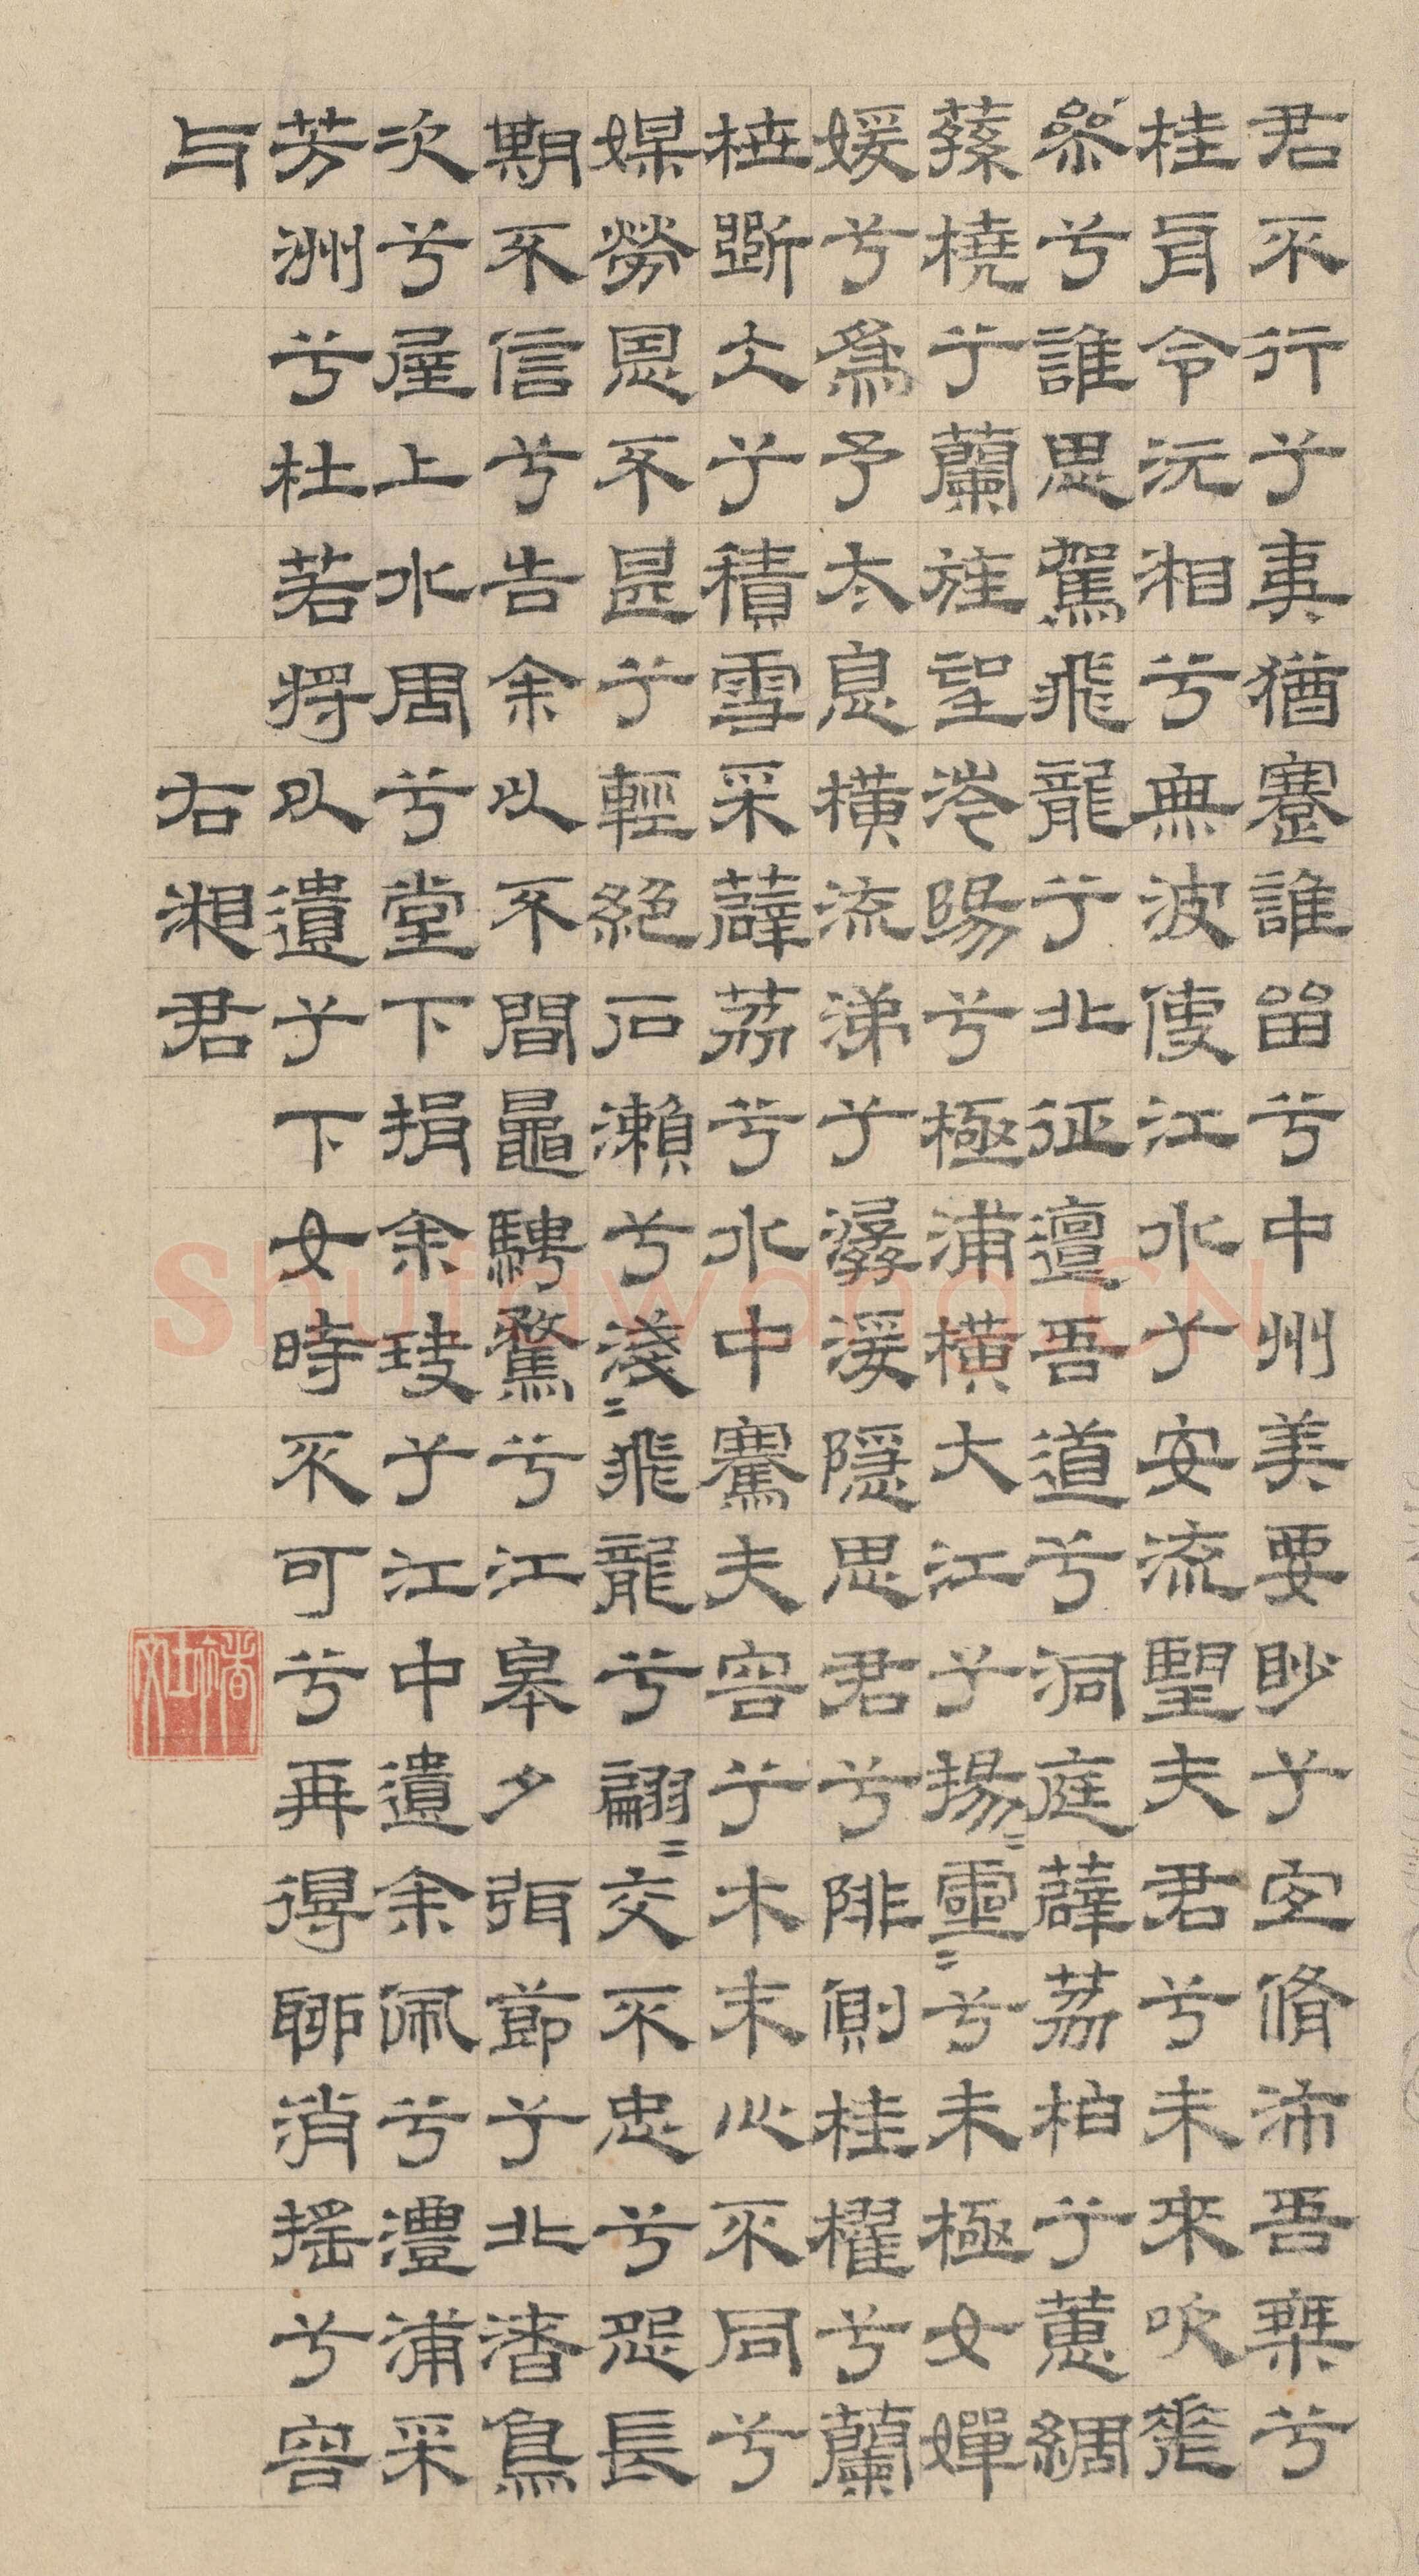 君不行兮夷猶蹇誰留兮中州美要眇兮宜脩沛吾乘兮
桂舟令沅湘兮無波使江水兮安流望夫君兮未來吹差
參兮誰思駕飛龍兮北征邅吾道兮洞庭薜荔柏兮蕙綢
蓀橈兮蘭旌望涔陽兮極浦橫大江兮揚〻靈〻兮未極女嬋
媛兮為予太息橫流涕兮潺湲隱思君兮陫側桂櫂兮蘭
枻斲冰兮積雪采薜荔兮水中騫夫容兮木末心不同兮
媒勞恩不甚兮輕絕石瀨兮淺〻飛龍兮翩〻交不忠兮怨長
期不信兮告余以不間鼂騁騖兮江皋夕弭節兮北渚鳥
次兮屋上水周兮堂下捐余玦兮江中遺余佩兮澧浦采
芳洲兮杜若將以遺兮下女時不可兮再得聊消搖兮容
与
右湘君
shufawang.CN